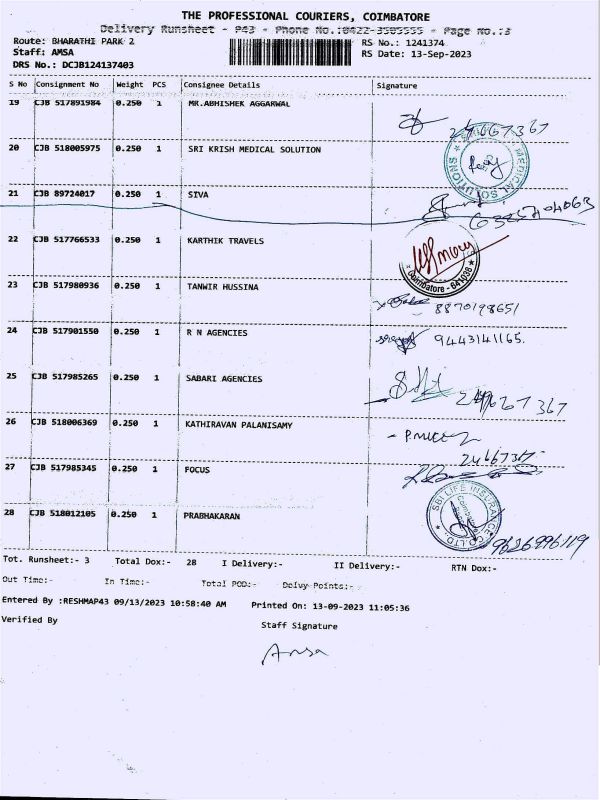 THE PROFESSIONAL COURIERS, COIMBATORE
Delivery Runsheet - P43 - Phone No.:0422-3505555 - Page No.:3
Route: BHARATHI PARK 2
RS No.: 1241374
Staff: AMSA
RS Date: 13-Sep-2023
DRS No.: DCJB124137403
S No Consignment No Weight PCS Consignee Details Signature
19 CJB 517891984 0.250 1 MR.ABHISHEK AGGARWAL
20 CJB 518005975 0.250 1 SRI KRISH MEDICAL SOLUTION
MEDICAL SOLUTIONS
21 CJB 89724017 0.250 1 SIVA
22 CJB 517766533 0.250 1 KARTHIK TRAVELS
Coimbatore - 641038
23 CJB 517980936 0.250 1 TANWIR HUSSINA
8870198651
24 CJB 517901550 0.250 1 R N AGENCIES 9443141165.
25 CJB 517985265 0.250 1 SABARI AGENCIES
26 CJB 518006369 0.250 1 KATHIRAVAN PALANISAMY
24667367
27 CJB 517985345 0.250 1 FOCUS
SBI LIFE INSURANCE CO.LTD.
28 CJB 518012105 0.250 1 PRABHAKARAN
9626996119
Tot. Runsheet:- 3 Total Dox:- 28 I Delivery:- II Delivery:- RTN Dox:-
Out Time:- In Time:- Total POD:- Delvy Points:-
Entered By :RESHMAP43 09/13/2023 10:58:40 AM Printed On: 13-09-2023 11:05:36
Verified By
Staff Signature
Amsa